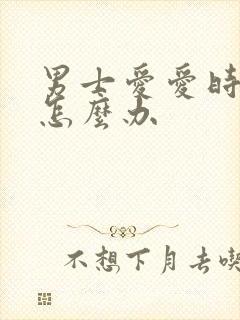 男士愛愛時
怎麼办
不想下月去